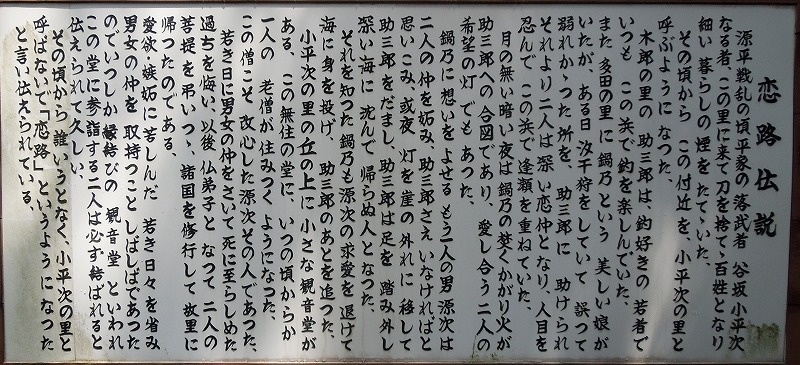 恋路伝説
源平戦乱の頃平家の落武者 谷坂小平次
なる者 この里に来て刀を捨て丶百姓となり
細い暮らしの煙をたて丶いた、
その頃から この付近を、小平次の里と
呼ぶようになった、
木郎の里の 助三郎は、釣好きの 若者で
いつも この浜で釣を楽しんでいた、
また 多田の里に 鍋乃という 美しい娘が
いたが ある日 汐干狩をしていて 誤って
溺れかゝった所を、助三郎に 助けられ
それより二人は深い恋仲となり、人目を
忍んで この浜で逢瀬を重ねていた、
月の無い暗い夜は鍋乃の焚くかがり火が
助三郎への 合図であり、愛し合う 二人の
希望の灯 でもあった、
鍋乃に想いをよせる もう一人の男 源次は
二人の仲を妬み、助三郎さえ いなければと
思いこみ、或夜 灯を崖の外れに 移して
助三郎をだまし、助三郎は足を 踏み外し
深い海に 沈んで 帰らぬ人となった、
それを知った 鍋乃も 源次の求愛を 退けて
海に身を投げ、助三郎のあとを追った、
小平次の里の丘の上に 小さな観音堂が
ある、この無住の堂に いつの頃からか
一人の 老僧が 住みつくようになった、
この僧こそ 改心した源次 その人であった、
若き日に男女の仲をさいて 死に至らしめた
過ちを悔い、以後 仏弟子と なって 二人の
菩提を 弔いつゝ、諸国を修行して 故里に
帰ったのである、
愛欲・嫉妬に苦しんだ 若き日々を 省み
男女の仲を 取持つこと しばしばであった
のでいつしか 縁結びの 観音堂 といわれ
この堂に参詣する二人は必ず結ばれると
伝えられて久しい、
その頃から 誰いうとなく、小平次の里と
呼ばないで「恋路」というようになった
と言い伝えられている、